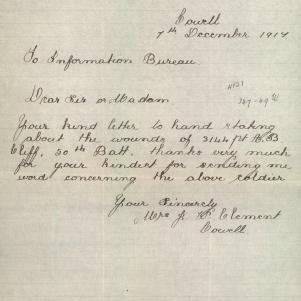 Cowell
7th December 1917
To Information Bureau.
4731
Dear Sir or Madam
Your kind letter to hand stating
about the wounds of 3144 Pt H.B
Cliff, 50th Batt, thanks very much
for your kindest for sending me
word concerning the above soldier
Your Sincerely
Mrs J. H. Clement
Cowell